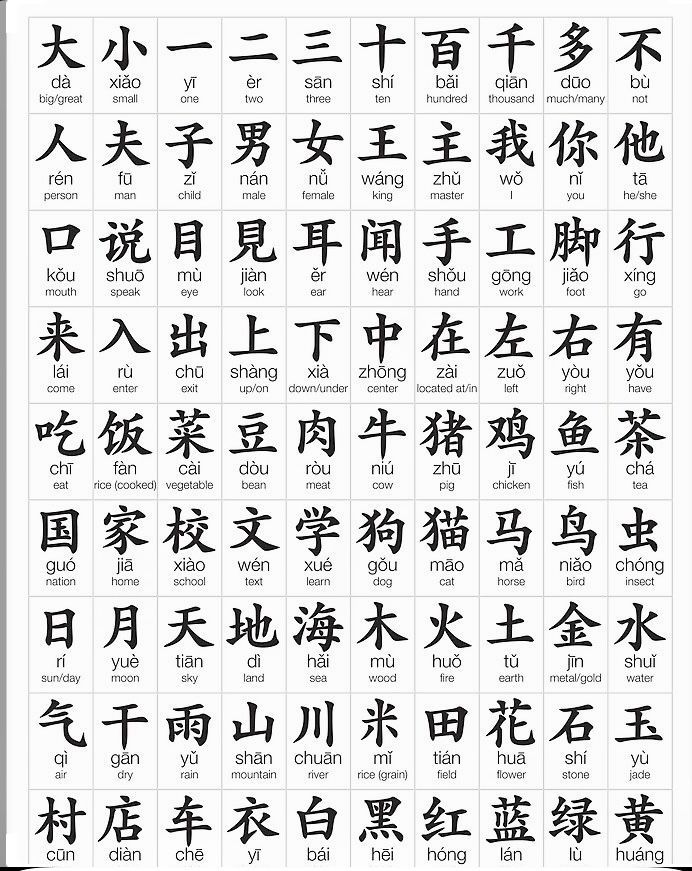 大 小 一 二 三 十 百 千 多 不
dà xiǎo yī èr sān shí bǎi qiān dūo bù
big/great small one two three ten hundred thousand much/many not
人 夫 子 男 女 王 主 我 你 他
rén fū zǐ nán nǚ wáng zhǔ wǒ nǐ tā
person man child male female king master I you he/she
口 说 目 見 耳 闻 手 工 脚 行
kǒu shuō mù jiàn ěr wén shǒu gōng jiǎo xíng
mouth speak eye look ear hear hand work foot go
来 入 出 上 下 中 在 左 右 有
lái rù chū shàng xià zhōng zài zuǒ yòu yǒu
come enter exit up/on down/under center located at/in left right have
吃 饭 菜 豆 肉 牛 猪 鸡 鱼 茶
chī fàn cài dòu ròu niú zhū jī yú chá
eat rice (cooked) vegetable bean meat cow pig chicken fish tea
国 家 校 文 学 狗 猫 马 鸟 虫
guó jiā xiào wén xué gǒu māo mǎ niǎo chóng
nation home school text learn dog cat horse bird insect
日 月 天 地 海 木 火 土 金 水
rí yuè tiān dì hǎi mù huǒ tǔ jīn shuǐ
sun/day moon sky land sea wood fire earth metal/gold water
气 干 雨 山 川 米 田 花 石 玉
qì gān yǔ shān chuān mǐ tián huā shí yù
air dry rain mountain river rice (grain) field flower stone jade
村 店 车 衣 白 黑 红 蓝 绿 黄
cūn diàn chē yī bái hēi hóng lán lù huáng